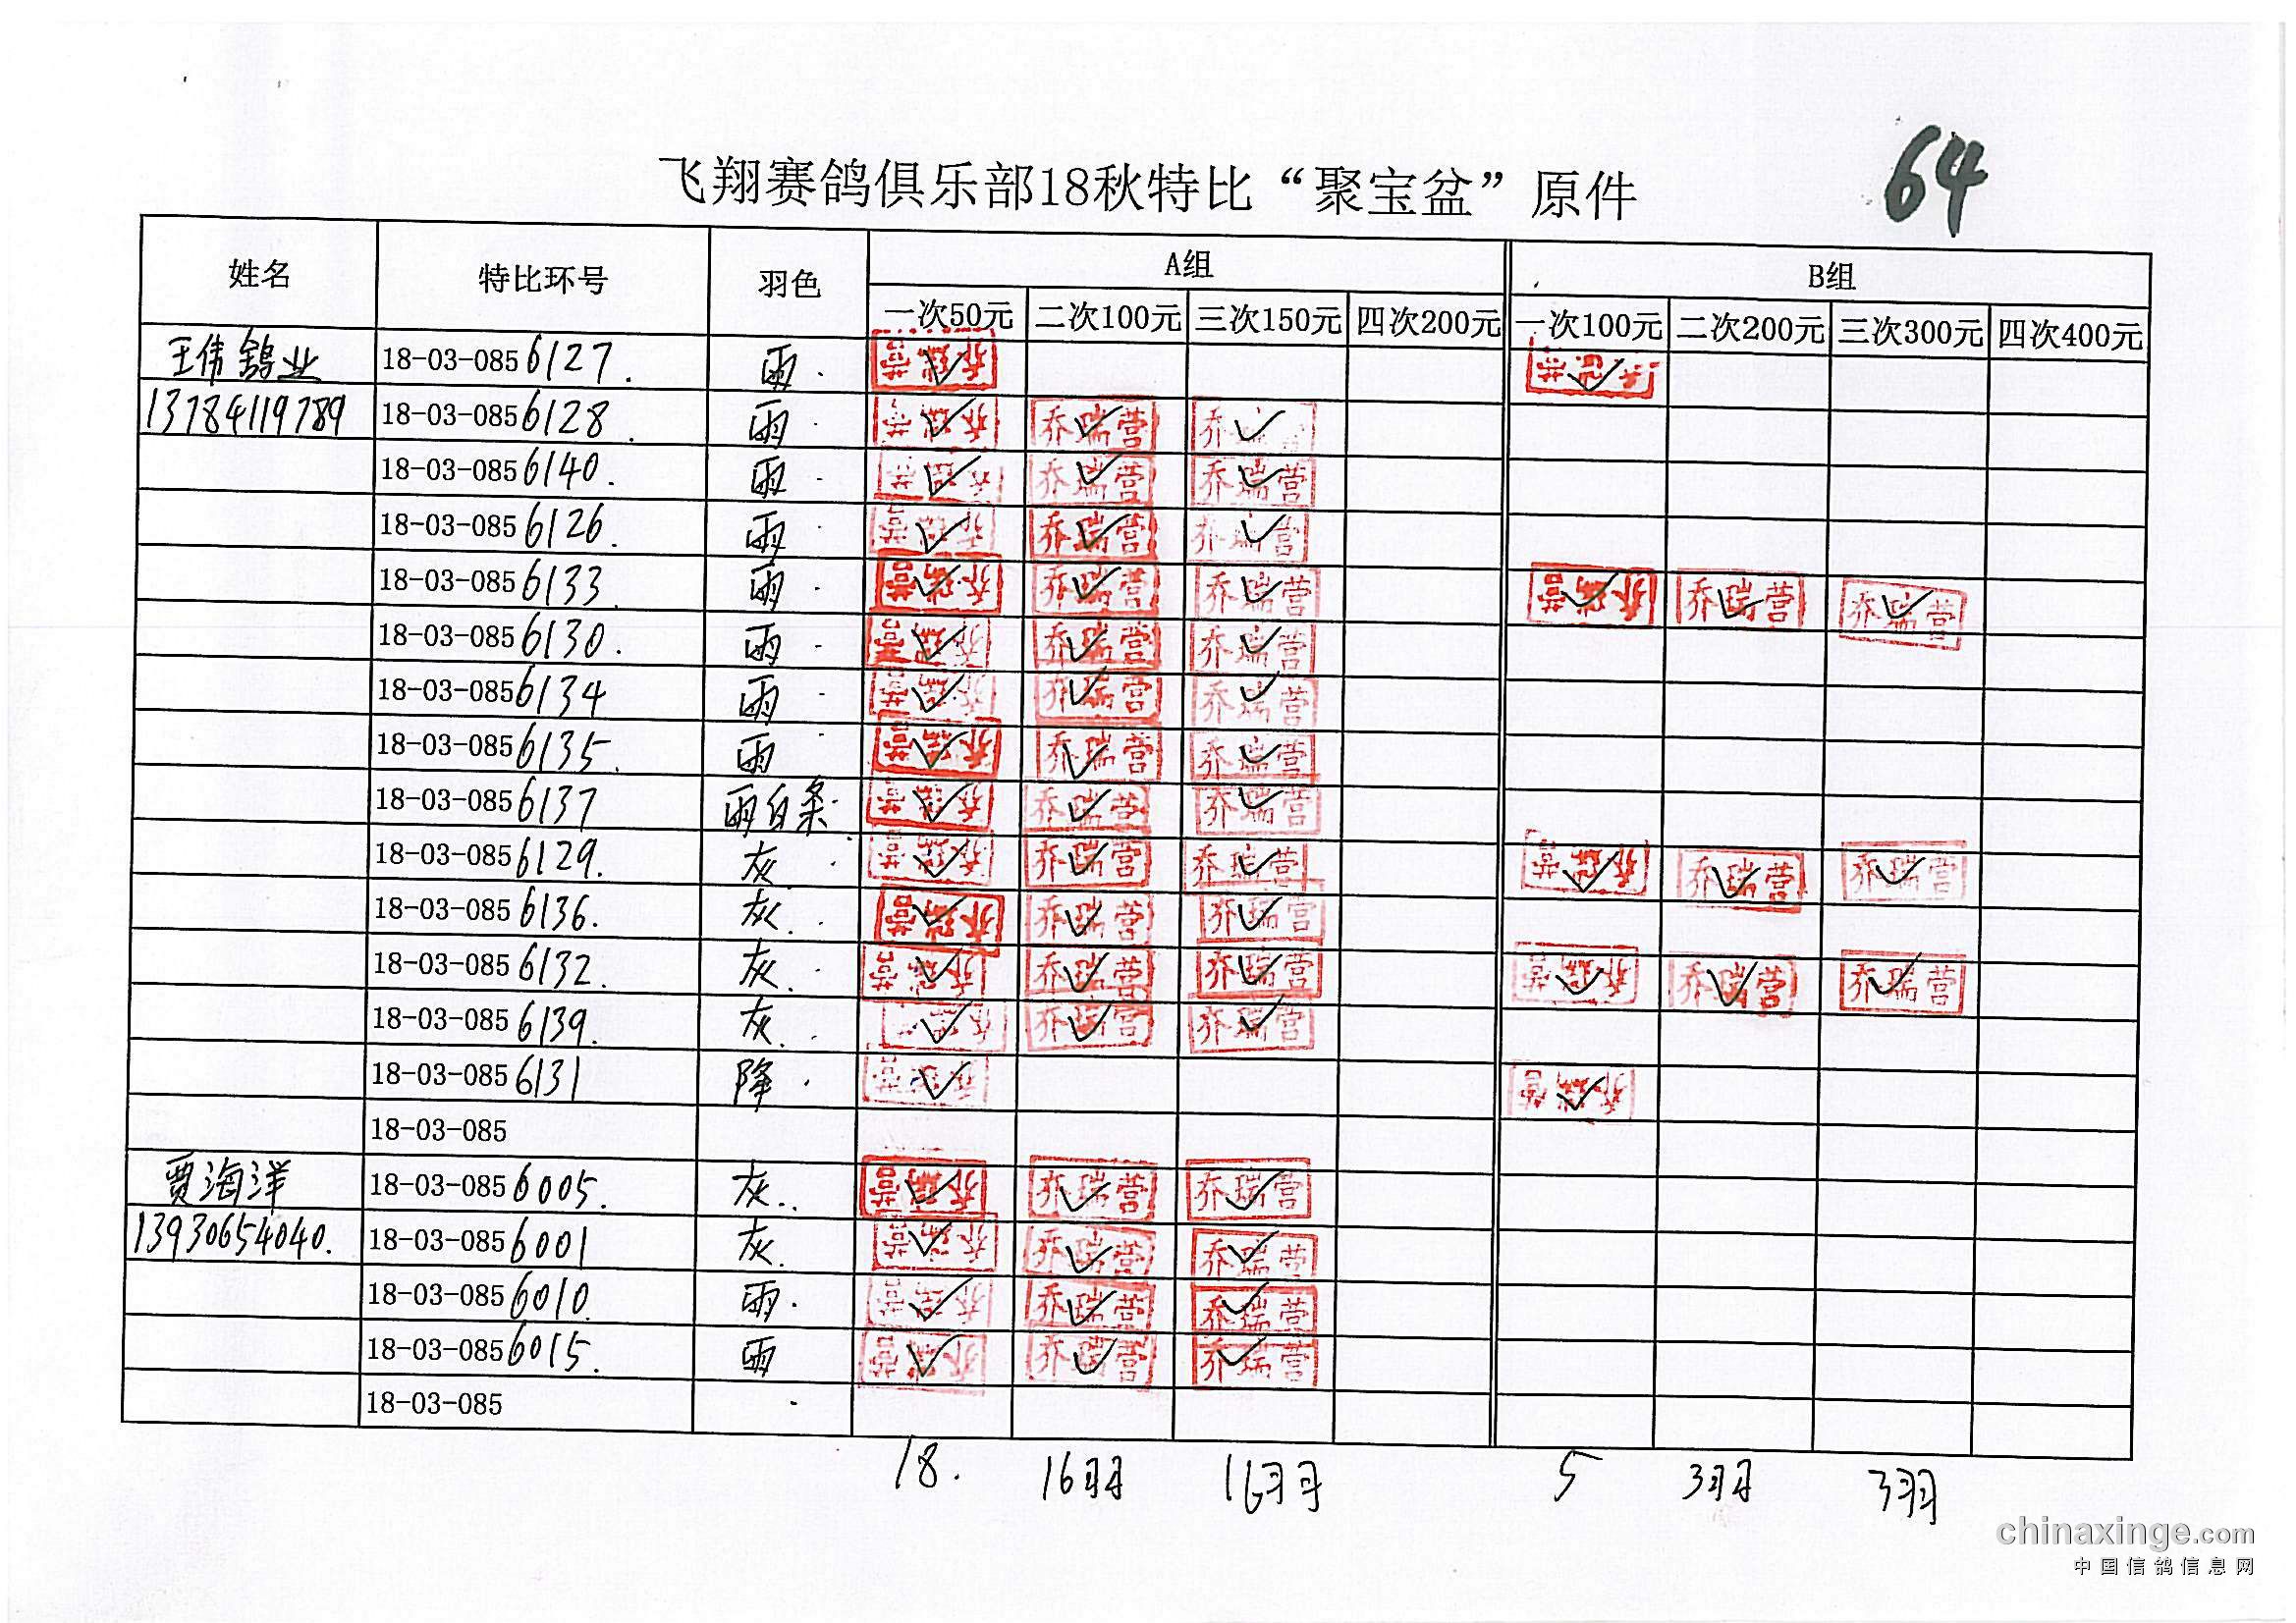 64
飞翔赛鸽俱乐部18秋特比“聚宝盆”原件
姓名 特比环号 羽色 A组 B组
一次50元 二次100元 三次150元 四次200元 一次100元 二次200元 三次300元 四次400元
王伟鸽业 18-03-085 6127. 雨 ✓ ✓
13784119789 18-03-085 6128. 雨 ✓ 乔瑞营 ✓ 乔 ✓
18-03-085 6140. 雨 ✓ 乔瑞营 ✓ 乔瑞营 ✓
18-03-085 6126. 雨 ✓ 乔瑞营 ✓ 乔瑞营 ✓
18-03-085 6133. 雨 乔瑞营 ✓ 乔瑞营 ✓ 乔瑞营 ✓ 乔瑞营 ✓ 乔瑞营 ✓ 乔瑞营 ✓
18-03-085 6130. 雨 ✓ 乔瑞营 ✓ 乔瑞营 ✓
18-03-085 6134 雨 ✓ 乔瑞营 ✓ 乔瑞营 ✓
18-03-085 6135. 雨 乔瑞营 ✓ 乔瑞营 ✓ 乔瑞营 ✓
18-03-085 6137 雨白条. ✓ 乔瑞营 ✓ 乔瑞营 ✓
18-03-085 6129. 灰 ✓ 乔瑞营 ✓ 乔瑞营 ✓ 乔瑞营 ✓ 乔瑞营 ✓ 乔瑞营 ✓
18-03-085 6136. 灰. 乔瑞营 ✓ 乔瑞营 ✓ 乔瑞营 ✓
18-03-085 6132. 灰. ✓ 乔瑞营 ✓ 乔瑞营 ✓ ✓ 乔瑞营 ✓ 乔瑞营 ✓
18-03-085 6139. 灰. ✓ 乔瑞营 ✓ 乔瑞营 ✓
18-03-085 6131 降. ✓ ✓
18-03-085
贾海洋 18-03-085 6005. 灰.. 乔瑞营 ✓ 乔瑞营 ✓ 乔瑞营 ✓
13930654040. 18-03-085 6001 灰. 乔瑞营 ✓ 乔瑞营 ✓ 乔瑞营 ✓
18-03-085 6010. 雨. ✓ 乔瑞营 ✓ 乔瑞营 ✓
18-03-085 6015. 雨 ✓ 乔瑞营 ✓ 乔瑞营 ✓
18-03-085
18. 16羽 16羽 5 3羽 3羽
chinaxinge.com
中国信鸽信息网